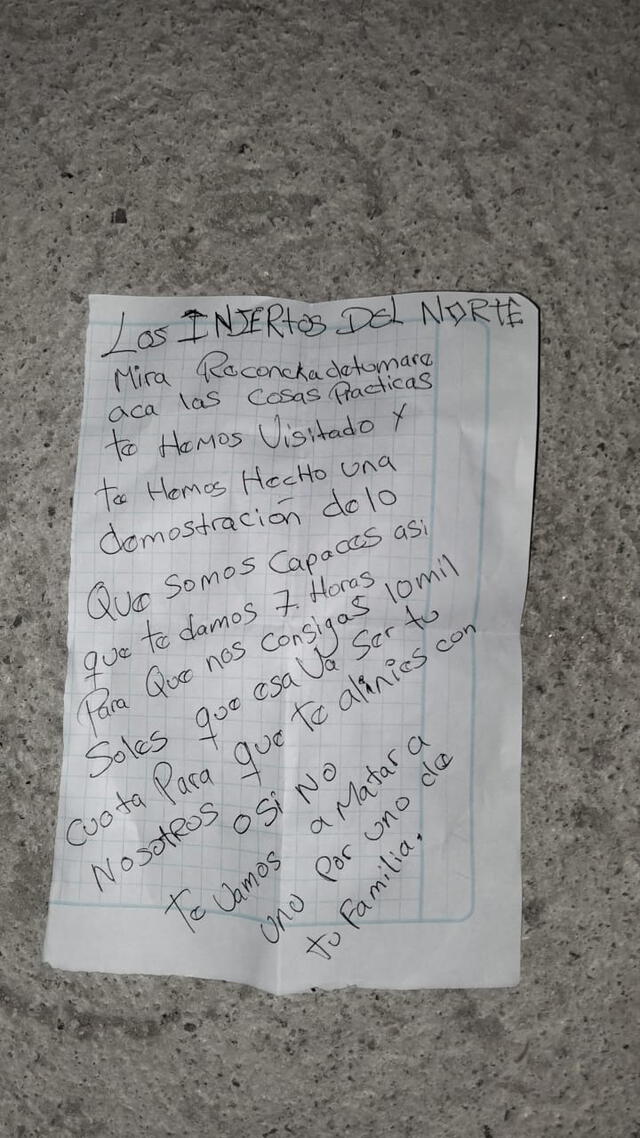 Los INJERtos DEL NORTE
Mira Reconchadetumare
aca las Cosas Practicas
te Hemos Visitado Y
te Hemos HecHo una
demostración delo
Que somos Capaces asi
que te damos 7 Horas
Para Que nos consigas 10 mil
Soles que esa Va Ser tu
cuota Para que te alinies con
NosotRos osi No
Te Vamos a Matar a
uno Por uno de
tu Familia.